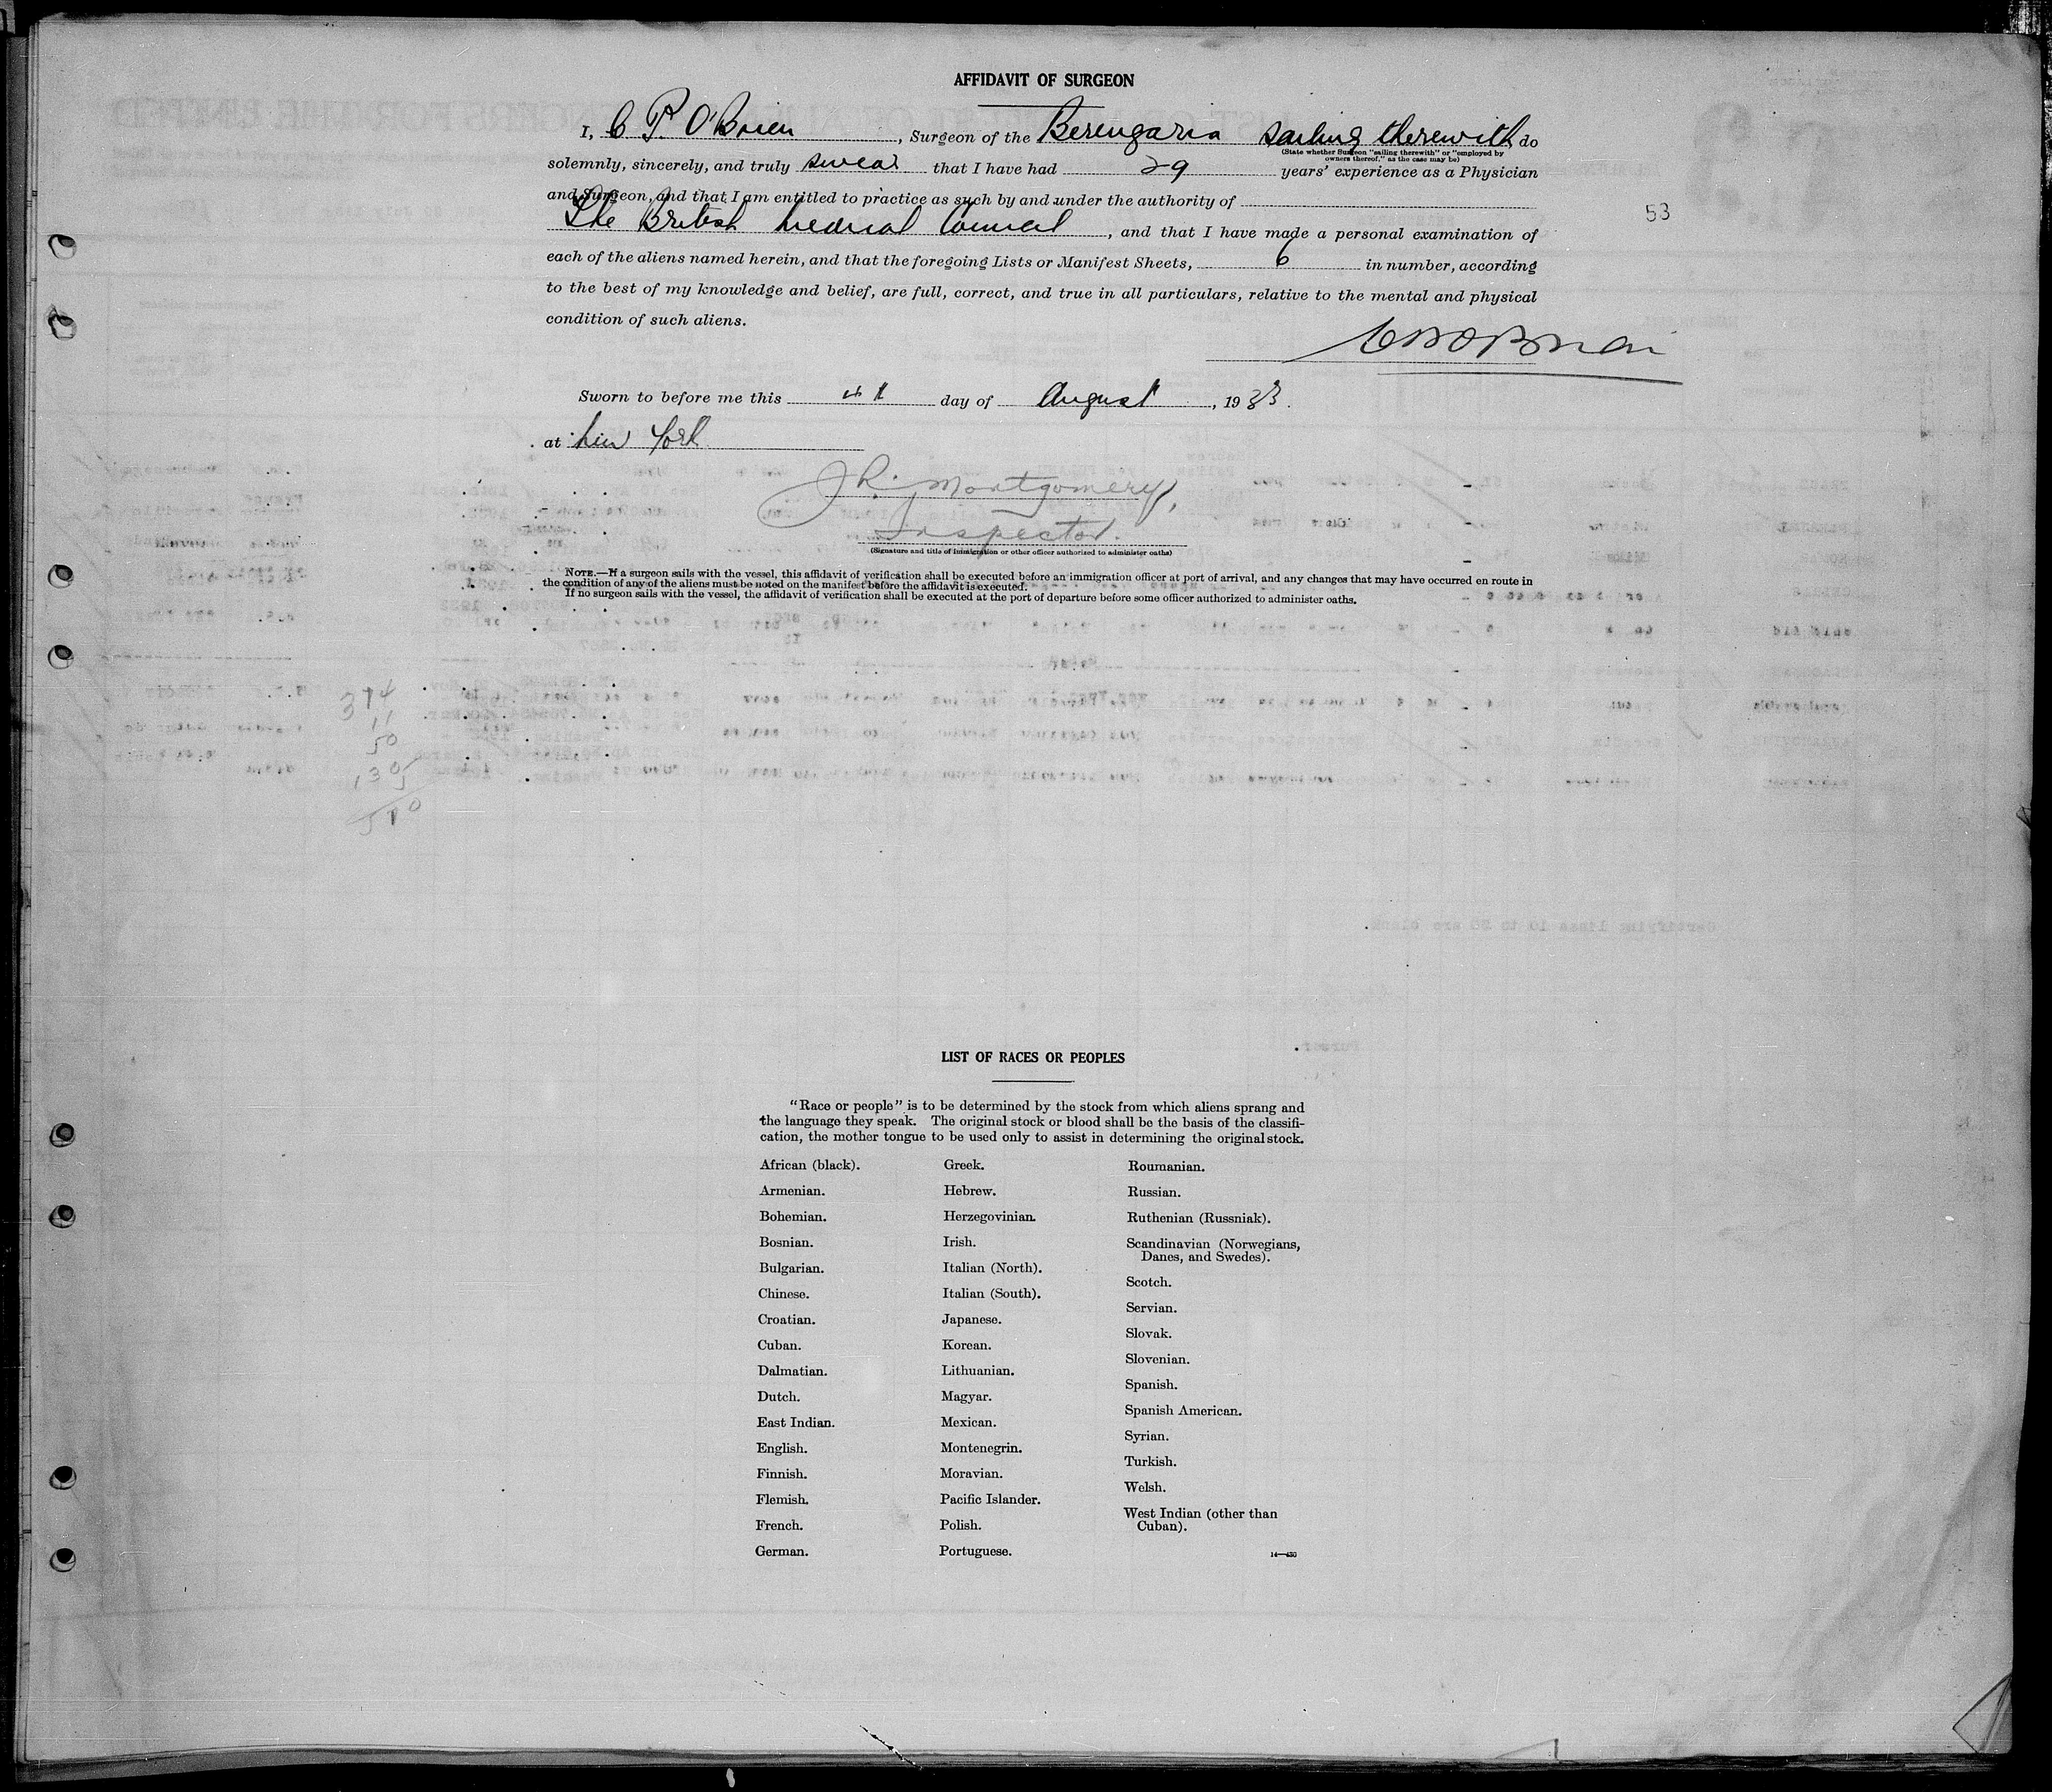 AFFIDAVIT OF SURGEON
I, C P. O'Brien, Surgeon of the Berengaria sailing therewith do
(State whether Surgeon "sailing therewith" or "employed by
owners thereof," as the case may be)
solemnly, sincerely, and truly swear that I have had 29 years' experience as a Physician
and Surgeon, and that I am entitled to practice as such by and under the authority of
The British Medical Council, and that I have made a personal examination of
53
each of the aliens named herein, and that the foregoing Lists or Manifest Sheets, 6 in number, according
to the best of my knowledge and belief, are full, correct, and true in all particulars, relative to the mental and physical
condition of such aliens.
Sworn to before me this day of August, 1933.
at New York
J R. Montgomery,
Inspector.
(Signature and title of immigration or other officer authorized to administer oaths)
NOTE.—If a surgeon sails with the vessel, this affidavit of verification shall be executed before an immigration officer at port of arrival, and any changes that may have occurred en route in
the condition of any of the aliens must be noted on the manifest before the affidavit is executed.
If no surgeon sails with the vessel, the affidavit of verification shall be executed at the port of departure before some officer authorized to administer oaths.
374
11
50
LIST OF RACES OR PEOPLES
"Race or people" is to be determined by the stock from which aliens sprang and
the language they speak. The original stock or blood shall be the basis of the classifi-
cation, the mother tongue to be used only to assist in determining the original stock.
African (black).
Armenian.
Bohemian.
Bosnian.
Bulgarian.
Chinese.
Croatian.
Cuban.
Dalmatian.
Dutch.
East Indian.
English.
Finnish.
Flemish.
French.
German.
Greek.
Hebrew.
Herzegovinian.
Irish.
Italian (North).
Italian (South).
Japanese.
Korean.
Lithuanian.
Magyar.
Mexican.
Montenegrin.
Moravian.
Pacific Islander.
Polish.
Portuguese.
Roumanian.
Russian.
Ruthenian (Russniak).
Scandinavian (Norwegians,
Danes, and Swedes).
Scotch.
Servian.
Slovak.
Slovenian.
Spanish.
Spanish American.
Syrian.
Turkish.
Welsh.
West Indian (other than
Cuban).
14—430